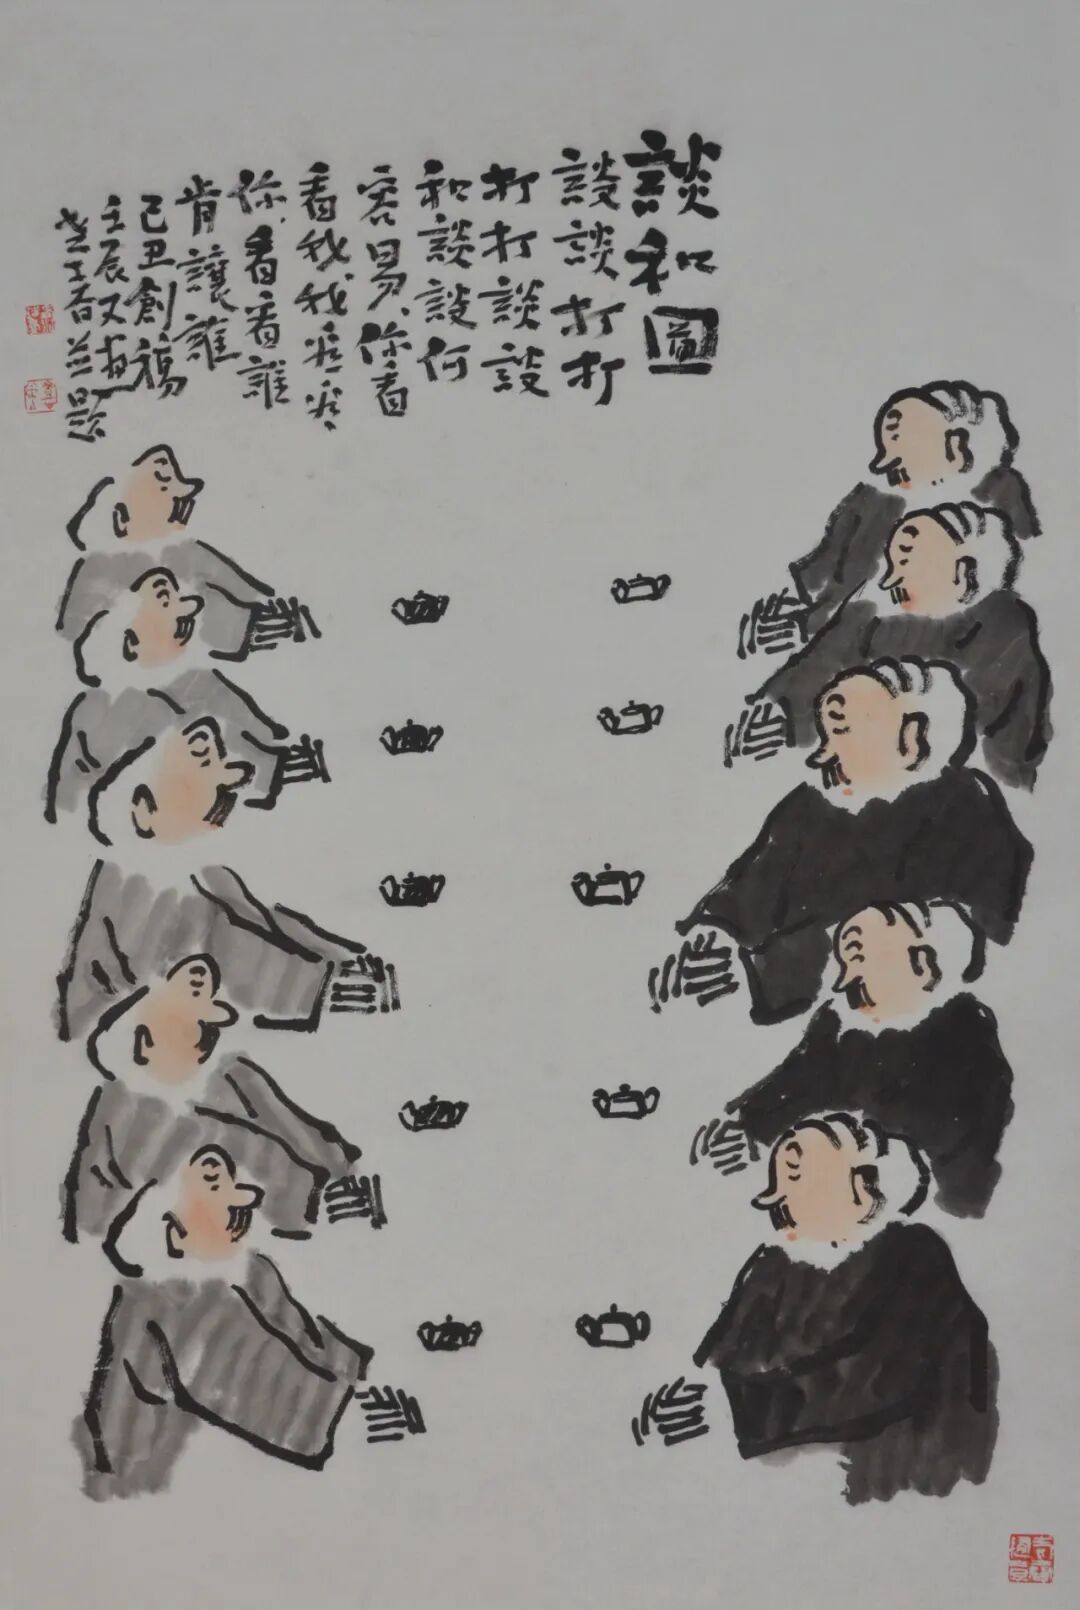 談和圖
談談打打
打打談談
和談談何
容易、你看
看我、我看看
你、看看誰
肯讓誰
己丑創稿
壬辰又畫
並題